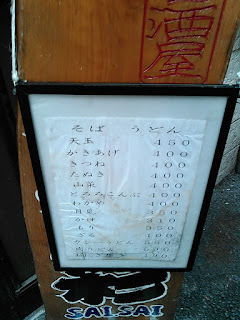 酒屋
そば うどん
天玉 450
かきあげ 400
きつね 400
たぬき 400
山菜 400
とろろこんぶ 400
わかめ 400
月見 350
かけ 310
もり 350
ざる 400
うどん
SAISAI